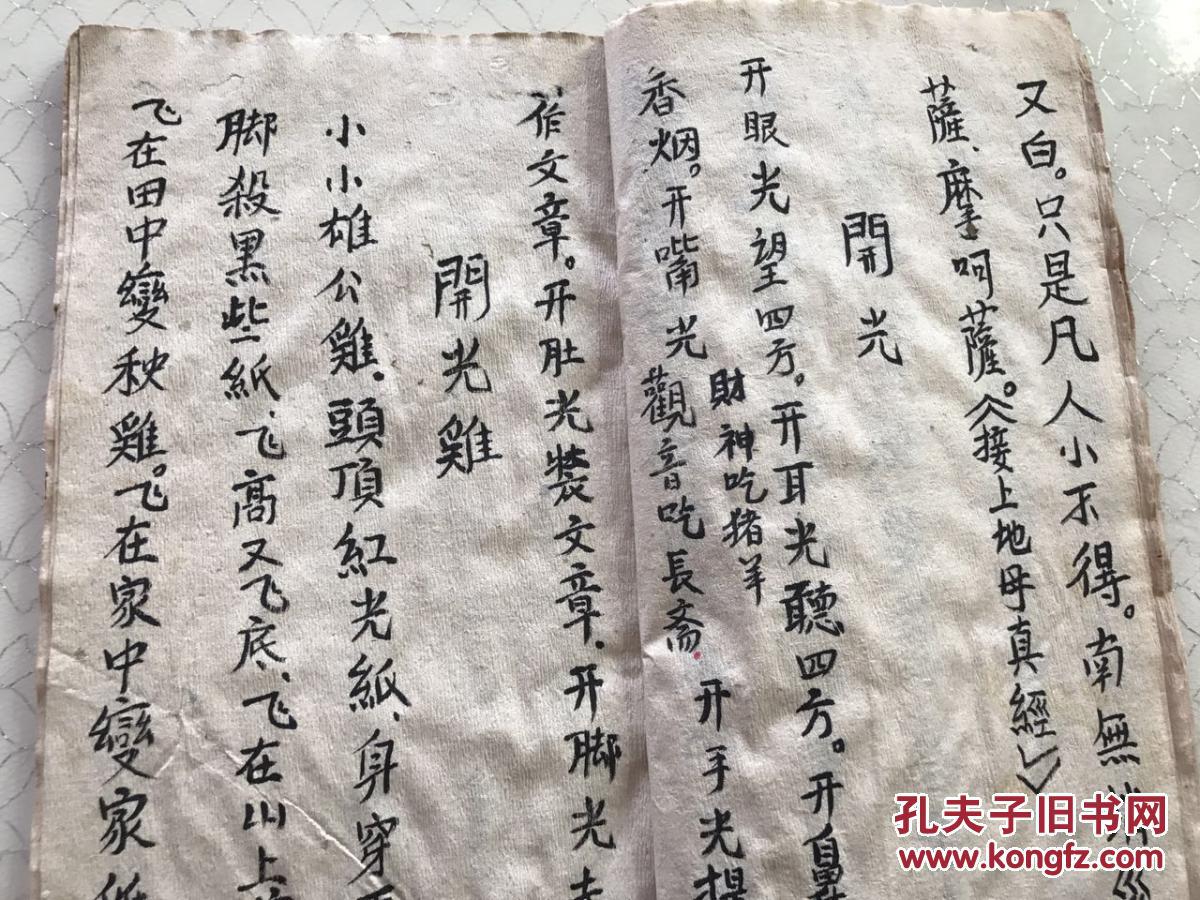 又白。只是凡人小不得。南無
薩、摩呵薩。《接上地母真經》
開光
开眼光望四方。开耳光聽四方。开鼻
財神吃猪羊
香烟。开嘴光觀音吃長斋.开手光提
作文章。开肚光裝文章.开脚光
開光雞
小小雄公雞.頭頂紅光紙、身穿
脚殺黑些紙、飞高又飞底、飞在山上
飞在田中變秧雞。飞在家中變家
孔夫子旧书网
www.kongfz.com